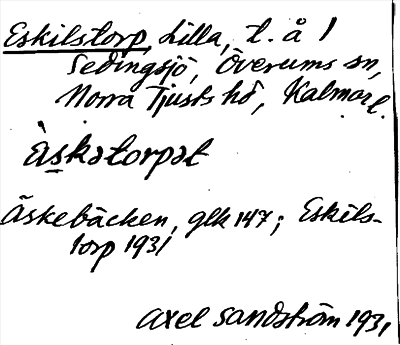 Eskilstorp, Lilla, t. å 1
Sedingsjö, Överums sn,
Norra Tjusts hd, Kalmar l.
Àskatorpat
Äskebäcken, glk 147; Eskils-
torp 1931
Axel Sandström 1931